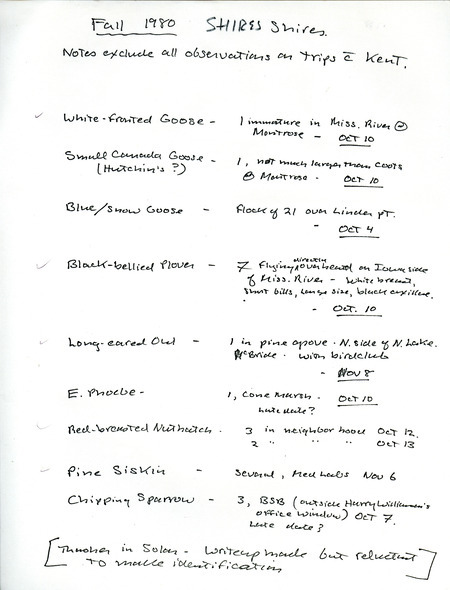 Fall 1980 SHIRES Shires
Notes exclude all observations on trips c̄ Kent.
White-fronted Goose - 1 immature in Miss. River @
Montrose - OCT 10
Small Canada Goose - 1, not much larger than coots
(Hutchin's?) @ Montrose - OCT 10
Blue/Snow Goose - Flock of 21 over Linder pt.
- OCT 4
Black-bellied Plover - 7 flying directly overhead on Iowa side
of Miss. River - white breast,
short bills, large size, black axillae.
- Oct. 10
Long-eared Owl - 1 in pine grove - N. side of N. Lake.
McBride - with birdclub
- Nov 8
E. Phoebe - 1, Cone Marsh - OCT 10
Late date?
Red-breasted Nuthatch - 3 in neighborhood OCT 12.
2 " " " OCT 13
Pine Siskin - Several, Med Labs Nov 6
Chipping Sparrow - 3, BSB (outside Harry
office window) OCT 7.
Late date?
[Thrasher in Solon - Writeup made but reluctant
to make identification]